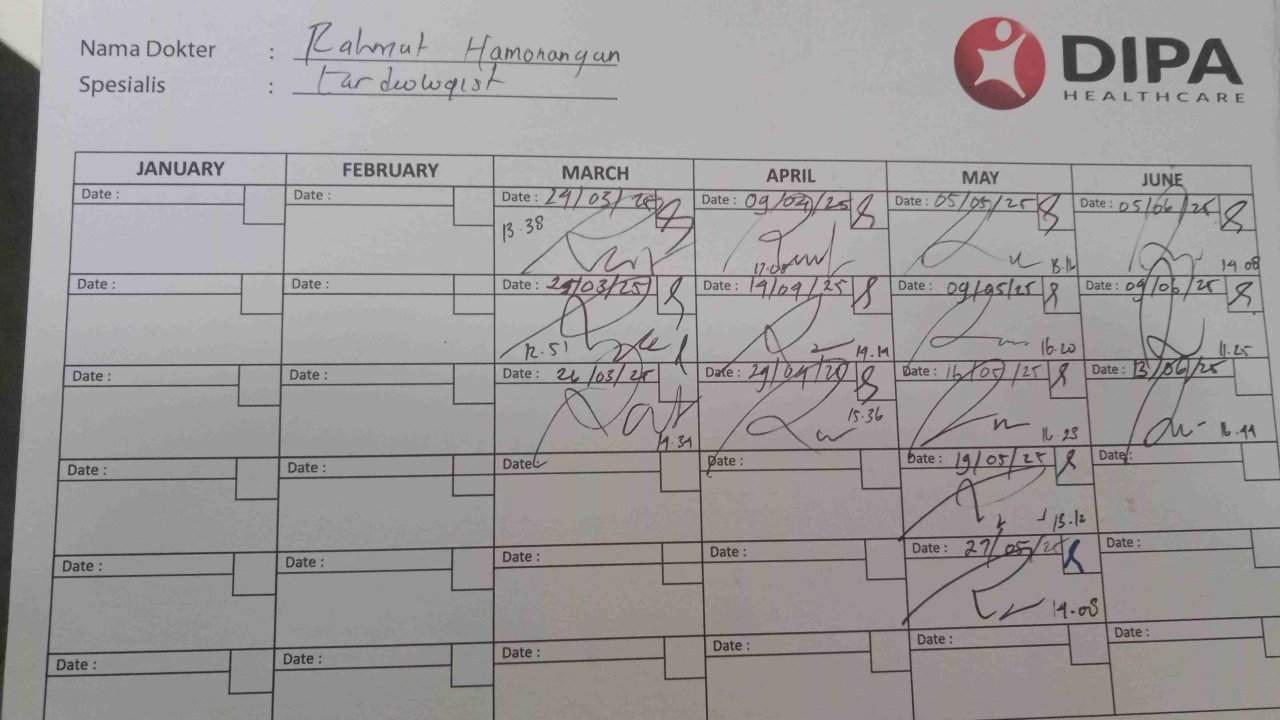 Nama Dokter : Rahmat Hamonangan
Spesialis : Cardiologist
DIPA
HEALTHCARE
JANUARY FEBRUARY MARCH APRIL MAY JUNE
Date : Date : Date : 24/03/25 Date : 09/04/25 Date : 05/05/25 Date : 05/06/25
13.38 17.08 13.12 14.08
Date : Date : Date : 25/03/25 Date : 14/04/25 Date : 09/05/25 Date : 09/06/25
12.51 14.14 16.20 11.25
Date : Date : Date : 26/03/25 Date : 29/04/25 Date : 16/05/25 Date : 13/06/25
14.34 15.36 16.23 16.44
Date : Date : Date : Date : Date : 19/05/25 Date :
13.12
Date : Date : Date : Date : Date : 27/05/25 Date :
14.08
Date : Date : Date : Date : Date : Date :